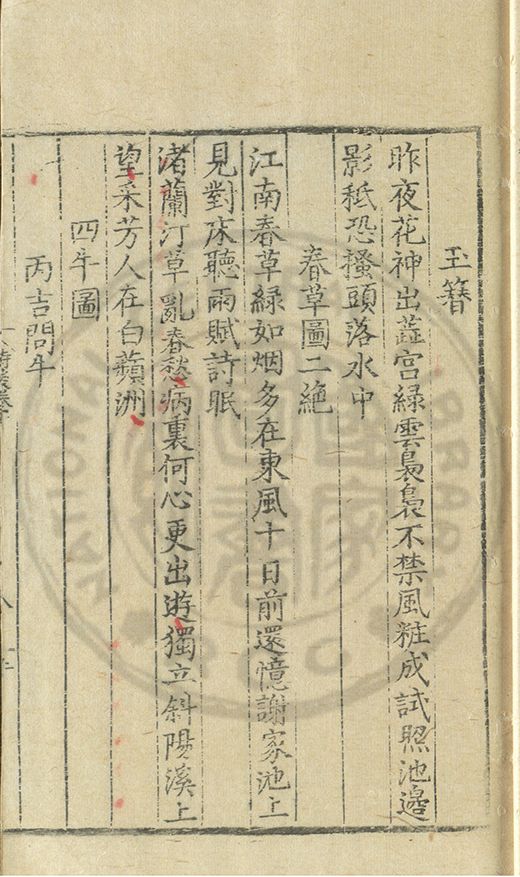 玉簪
昨夜花神出蕋宮綠雲裊裊不禁風粧成試照池邊
影秪恐搔頭落水中
春草圖二絶
江南春草綠如烟多在東風十日前還憶謝家池上
見對床聽雨賦詩眠
渚蘭汀草亂春愁病裏何心更出遊獨立斜陽溪上
望采芳人在白蘋洲
四牛圖
丙吉問牛